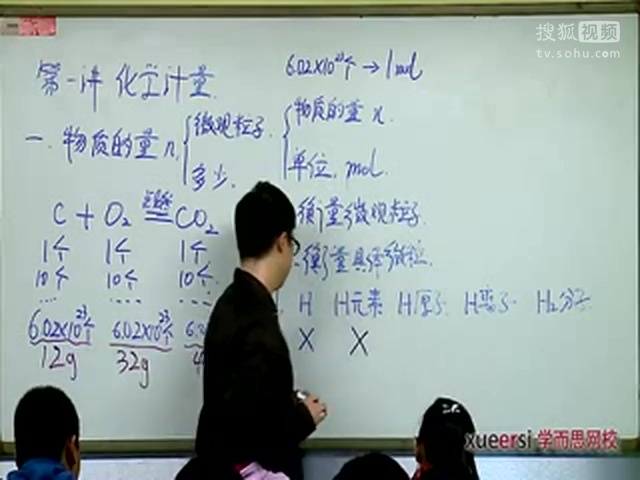 搜狐视频
tv.sohu.com
第一讲 化学计量
6.02×10²³个 → 1mol
一. 物质的量 n.
微观粒子.
多少.
物质的量 n.
单位. mol.
C + O₂ 点燃 CO₂
1个 1个 1个
10个 10个 10个
... ... ...
6.02×10²³个 6.02×10²³个
12g 32g
衡量微观粒子.
衡量具体微粒.
H H元素 H原子 H离子 H₂分子
× ×
xueersi 学而思网校